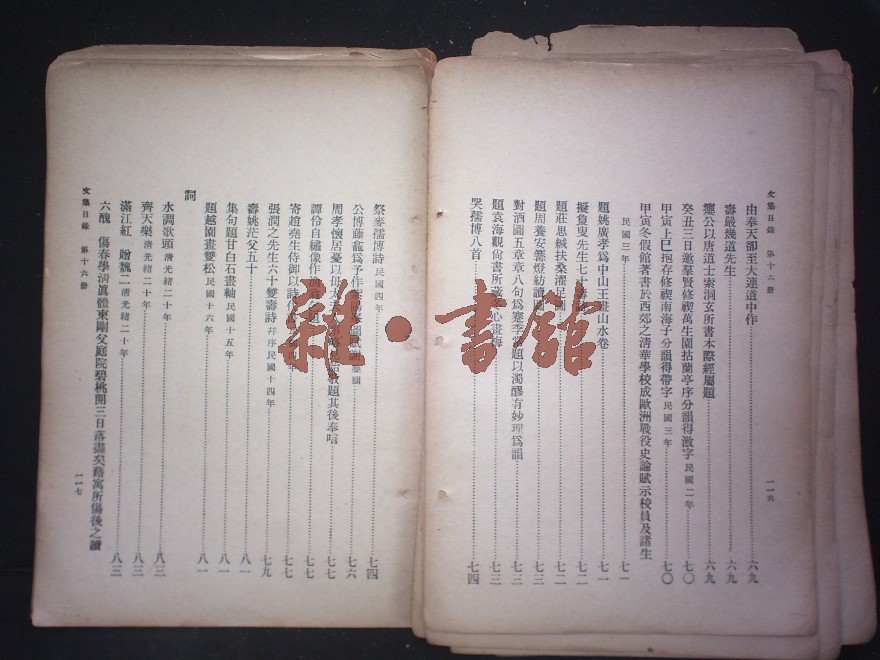 文集目錄 第十六冊 一一六
由奉天卻至大連道中作 六九
壽嚴幾道先生 六九
癭公以唐道士索洞玄所書本際經屬題 六九
癸丑三日邀羣賢修禊萬生園拈蘭亭序分韻得激字 民國二年 七〇
甲寅上巳抱存修禊南海子分韻得帶字 民國三年 七〇
甲寅冬假館著書於西郊之清華學校成歐洲戰役史論賦示校員及諸生
民國三年 七一
題姚廣孝爲中山王畫山水卷 七一
擬負曳先生七十壽 七二
題莊思緘扶桑濯足圖 七二
題周養安篝燈紡讀圖 七三
對酒圖五章章八句爲蹇季常題以濁醪有妙理爲韻 七三
題袁海觀尙書所藏冬心畫梅 七三
哭孺博八首 七四
祭麥孺博詩 民國四年 七四
公博藤龕爲予作 七六
周孝懷居憂以 題其後奉唁 七七
譚伶自繡像作 七七
寄趙堯生侍御以詩 七七
張潤之先生六十雙壽詩 并序民國十四年 七九
壽姚茫父五十 八一
集句題甘白石畫軸 民國十五年 八一
題越園畫雙松 民國十六年 八一
詞
水調歌頭 清光緒二十年 八三
齊天樂 清光緒二十年 八三
滿江紅 贈魏二 清光緒二十年 八三
六醜 傷春學清眞體東剛父庭院碧桃開三日落盡矣藉寓所傷後之讀
文集目錄 第十六冊 一一七
雜·書館